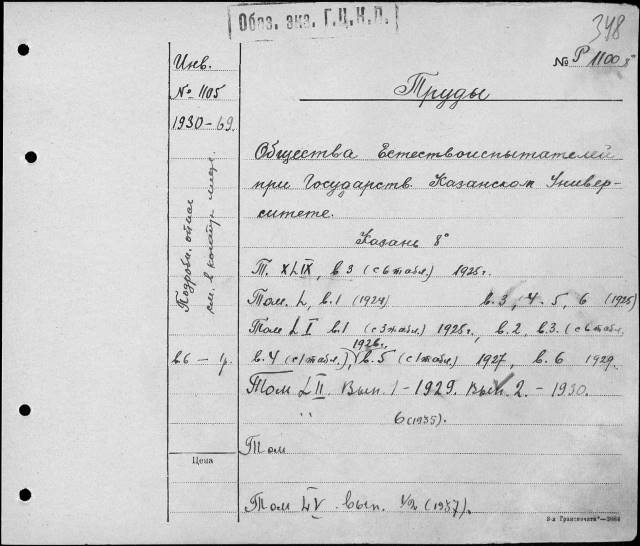 Обяз. экз. Г.Ц.К.П.
348
№ Р 1100 8°
Инв.
№ 1105
1930-69.
Труды
Общества Естествоиспытателей
при Государств. Казанском Универ-
ситете.
Казань 8°
Т. XLIX, в 3 (с 6 табл.) 1925г.
Том. L, в.1 (1924) в. 3, 4. 5, 6 (1925)
Том LI в.1 (с 3 табл.) 1925г., в.2, в.3. (с 6 табл.
1926г.
в6 — 1р.
в.4 (с 1 табл.), в.5 (с 1 табл.) 1927, в. 6 1929.
Том LII. Вып. 1 - 1929. Вып. 2. - 1930.
" 6 (1935).
Том
Цена
Том LV вып. 1/2 (1937).
Подробн. опис.
см. в
3-я Транспечати"—3864